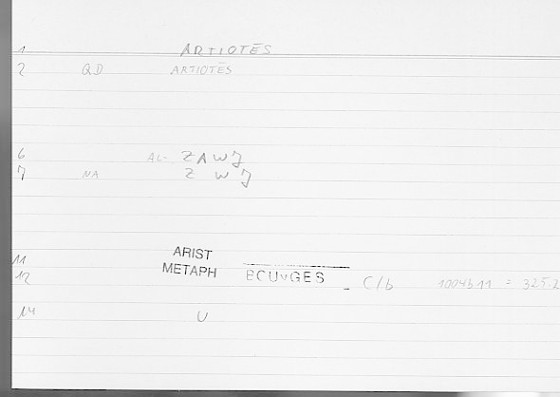 1 ARTIOTĒS
2 QD ARTIOTĒS
6 AL- ZAWJ
7 NA Z W J
11 ARIST
12 METAPH C/b 1004b11 = 325.2
14 U